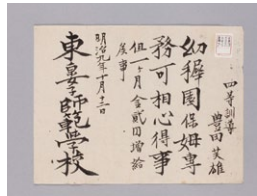 四等訓導
豊田芙雄
幼穉園保姆専
務可相心得事
但一ヶ月金貳円増給
候事
明治九年十月十二日
東京女子師範学校